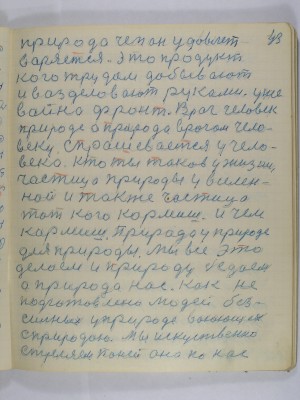 43
природа чем он удовлет-
варяется. Это продукт
кого трудом добывают
и вазделовают руками. уже
вайна фронт. Враг человек
природе а природа врогом чело-
веку. Спрашевается у чело-
века. Кто ты таков у жизни,
частица природы у вилен-
ной и также частица
тот кого кармиш. и чем
кармиш. Прирада у природе
для природы. Мы все это
делаем и природу едаем
а природа нас. Как не
подготовлено людей без-
сильных у природе воюющих
с природою. Мы искуственно
стреляем по ней она по нас